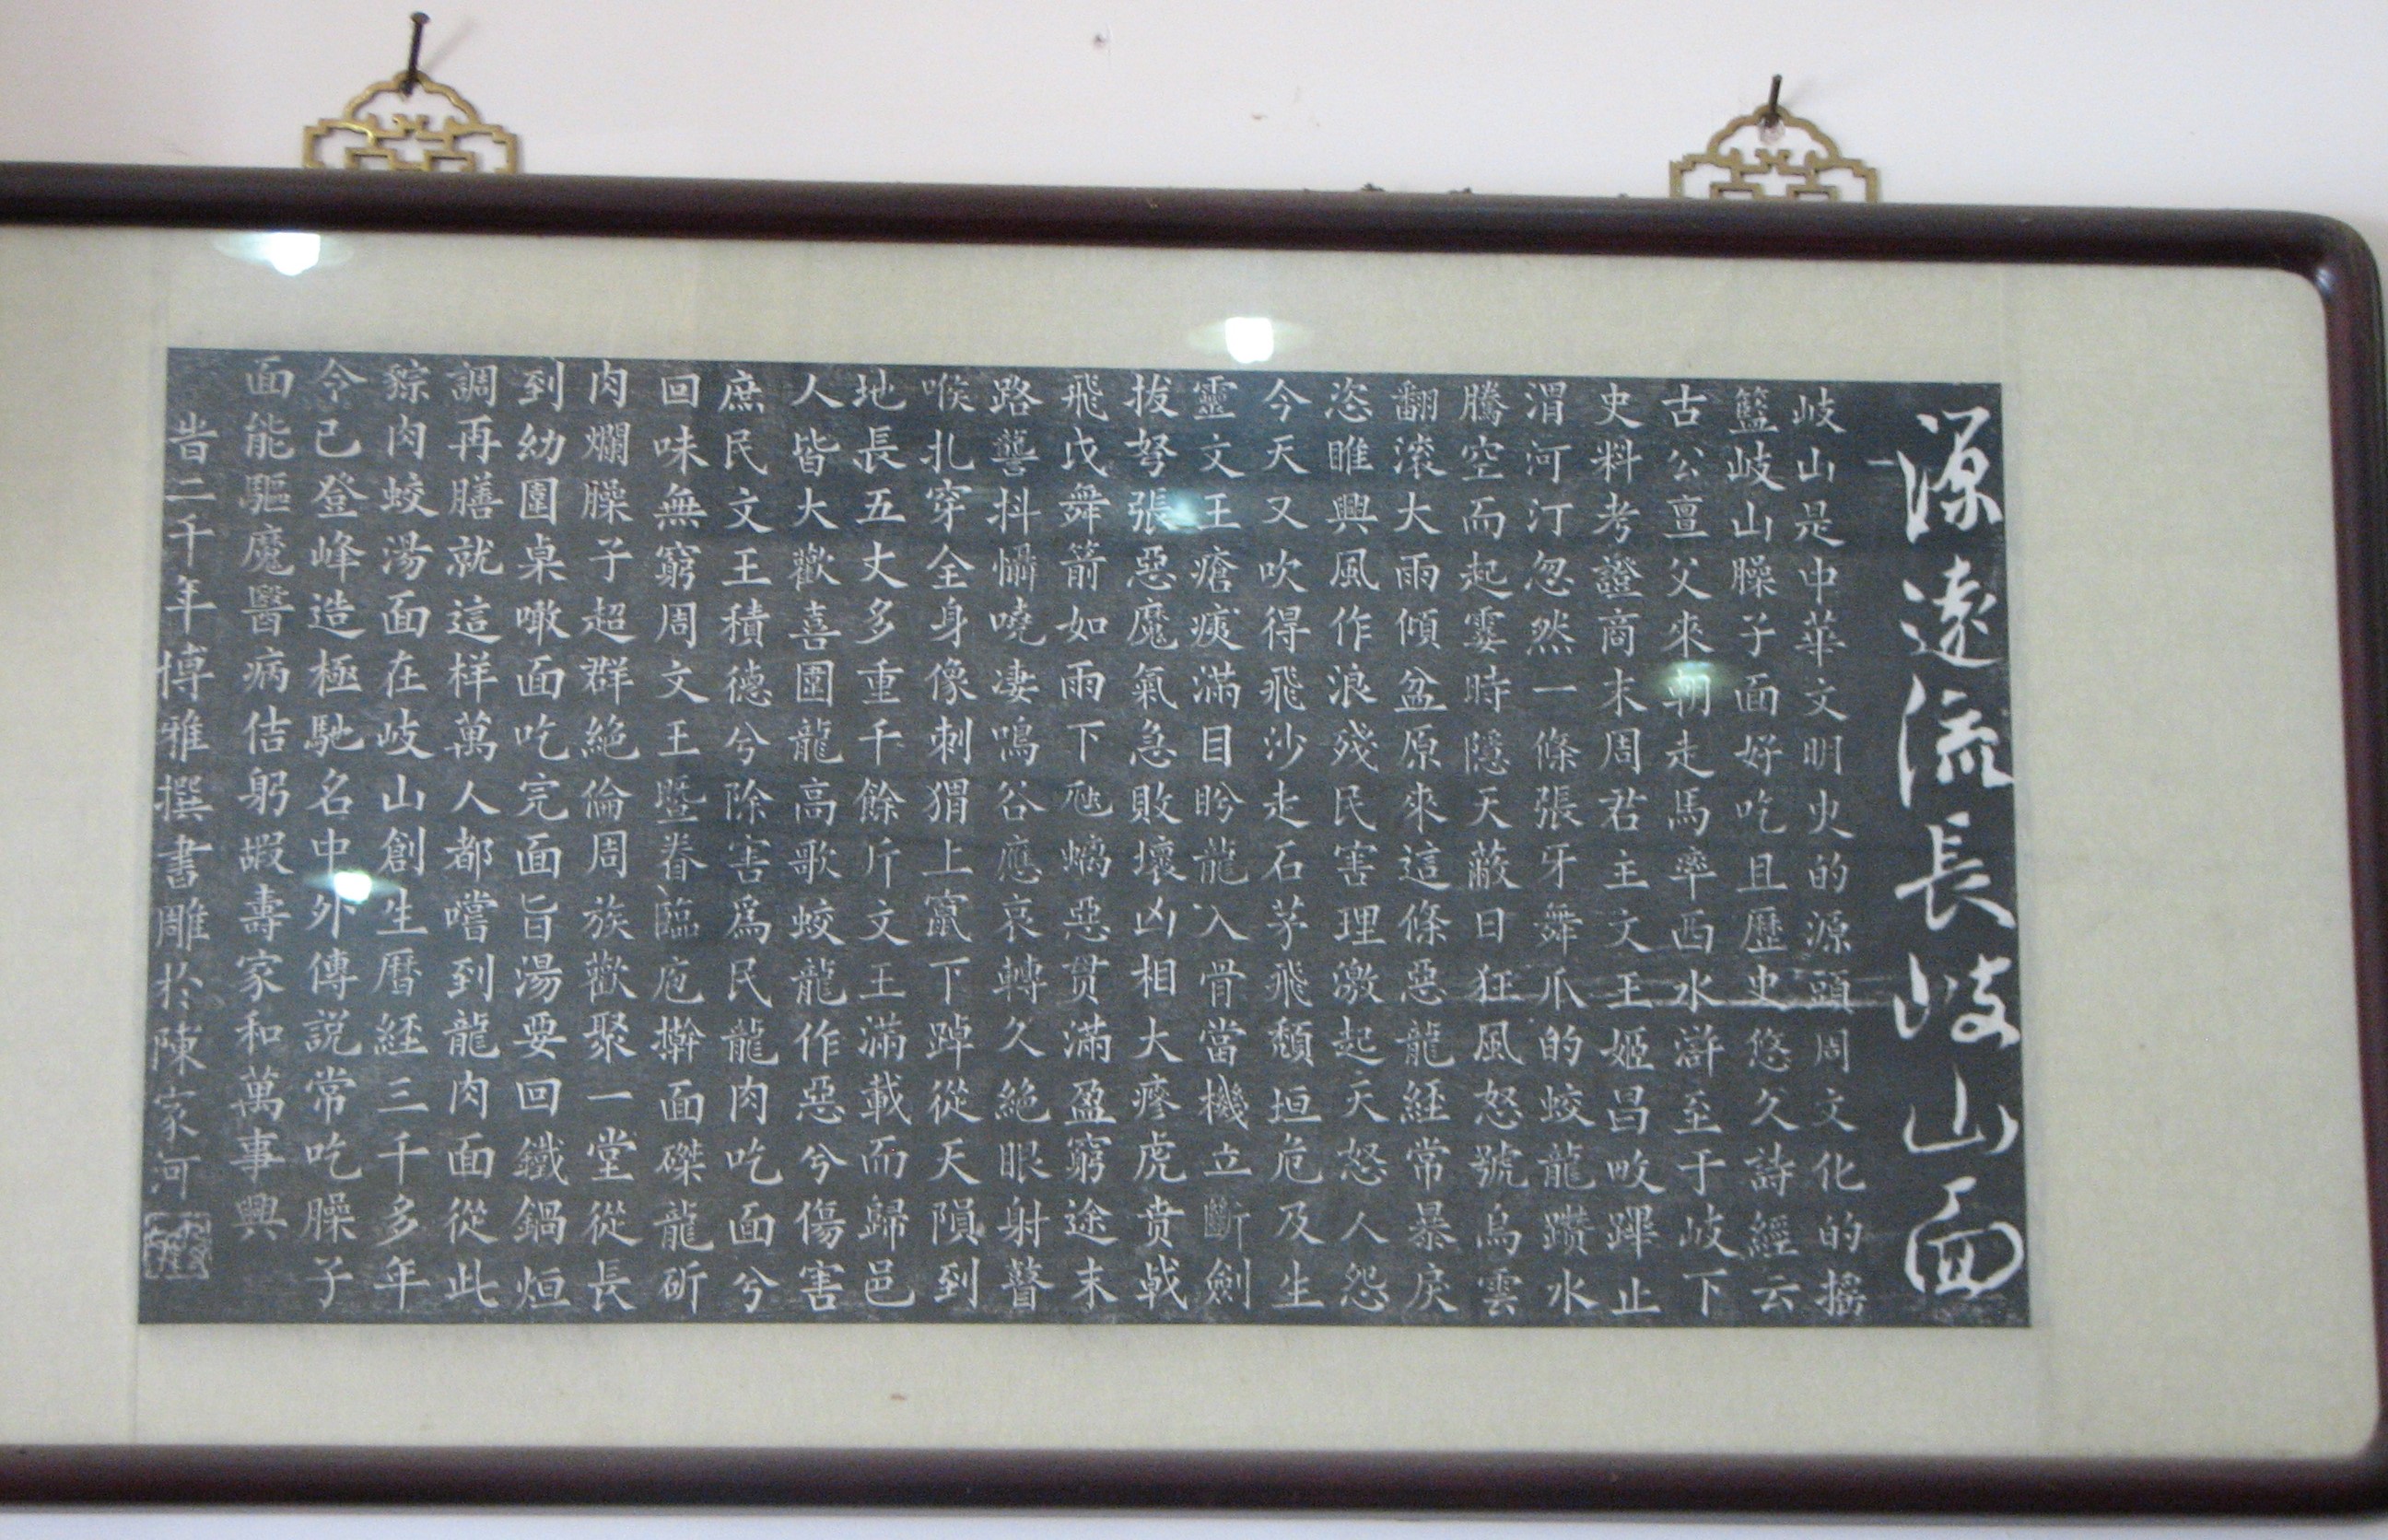 源遠流長岐山面
岐山是中華文明史的源頭周文化的搖
籃岐山臊子面好吃且歷史悠久詩經云
古公亶父來朝走馬率西水滸至于岐下
史料考證商末周君主文王姬昌畋蹕止
渭河汀忽然一條張牙舞爪的蛟龍躦水
騰空而起霎時隱天蔽日狂風怒號烏雲
翻滾大雨傾盆原來這條惡龍経常暴戾
恣睢興風作浪殘民害理激起天怒人怨
今天又吹得飛沙走石茅飛頽垣危及生
靈文王瘡痍滿目盻龍入骨當機立斷劍
拔弩張惡魔氣急敗壞凶相大瘮虎贲戟
飛戊舞箭如雨下虺螭惡贯滿盈窮途末
路讋抖懾嘵凄鳴谷應哀轉久絕眼射瞽
喉扎穿全身像刺猬上竄下踔從天隕到
地長五丈多重千餘斤文王滿載而歸邑
人皆大歡喜圍龍高歌蛟龍作惡兮傷害
庶民文王積德兮除害爲民龍肉吃面兮
回味無窮周文王暨眷臨庖擀面磔龍斫
肉爛臊子超群絕倫周族歡聚一堂從長
到幼圍桌噉面吃完面旨湯要回鐵鍋烜
調再膳就這样萬人都嚐到龍肉面從此
窊肉蛟湯面在岐山創生曆経三千多年
今已登峰造極馳名中外傳説常吃臊子
面能驅魔醫病佶躬嘏壽家和萬事興
旹二千年博雅撰書雕於陳家河